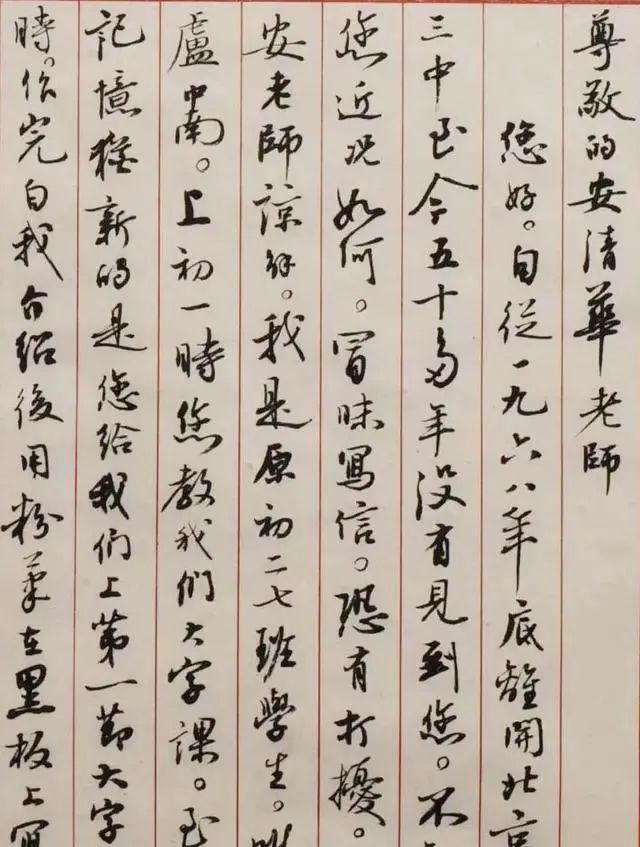 尊敬的安清華老師
您好。自從一九六八年底離開北京
三中至今五十多年没有見到您。不
您近况如何。冒昧寫信。恐有打擾。
安老師諒解。我是原初二七班學生。
盧中南。上初一時您教我们大字課。至
記憶猶新的是您给我们上第一節大字
時。你完自我介绍後用粉笔在黑板上寫